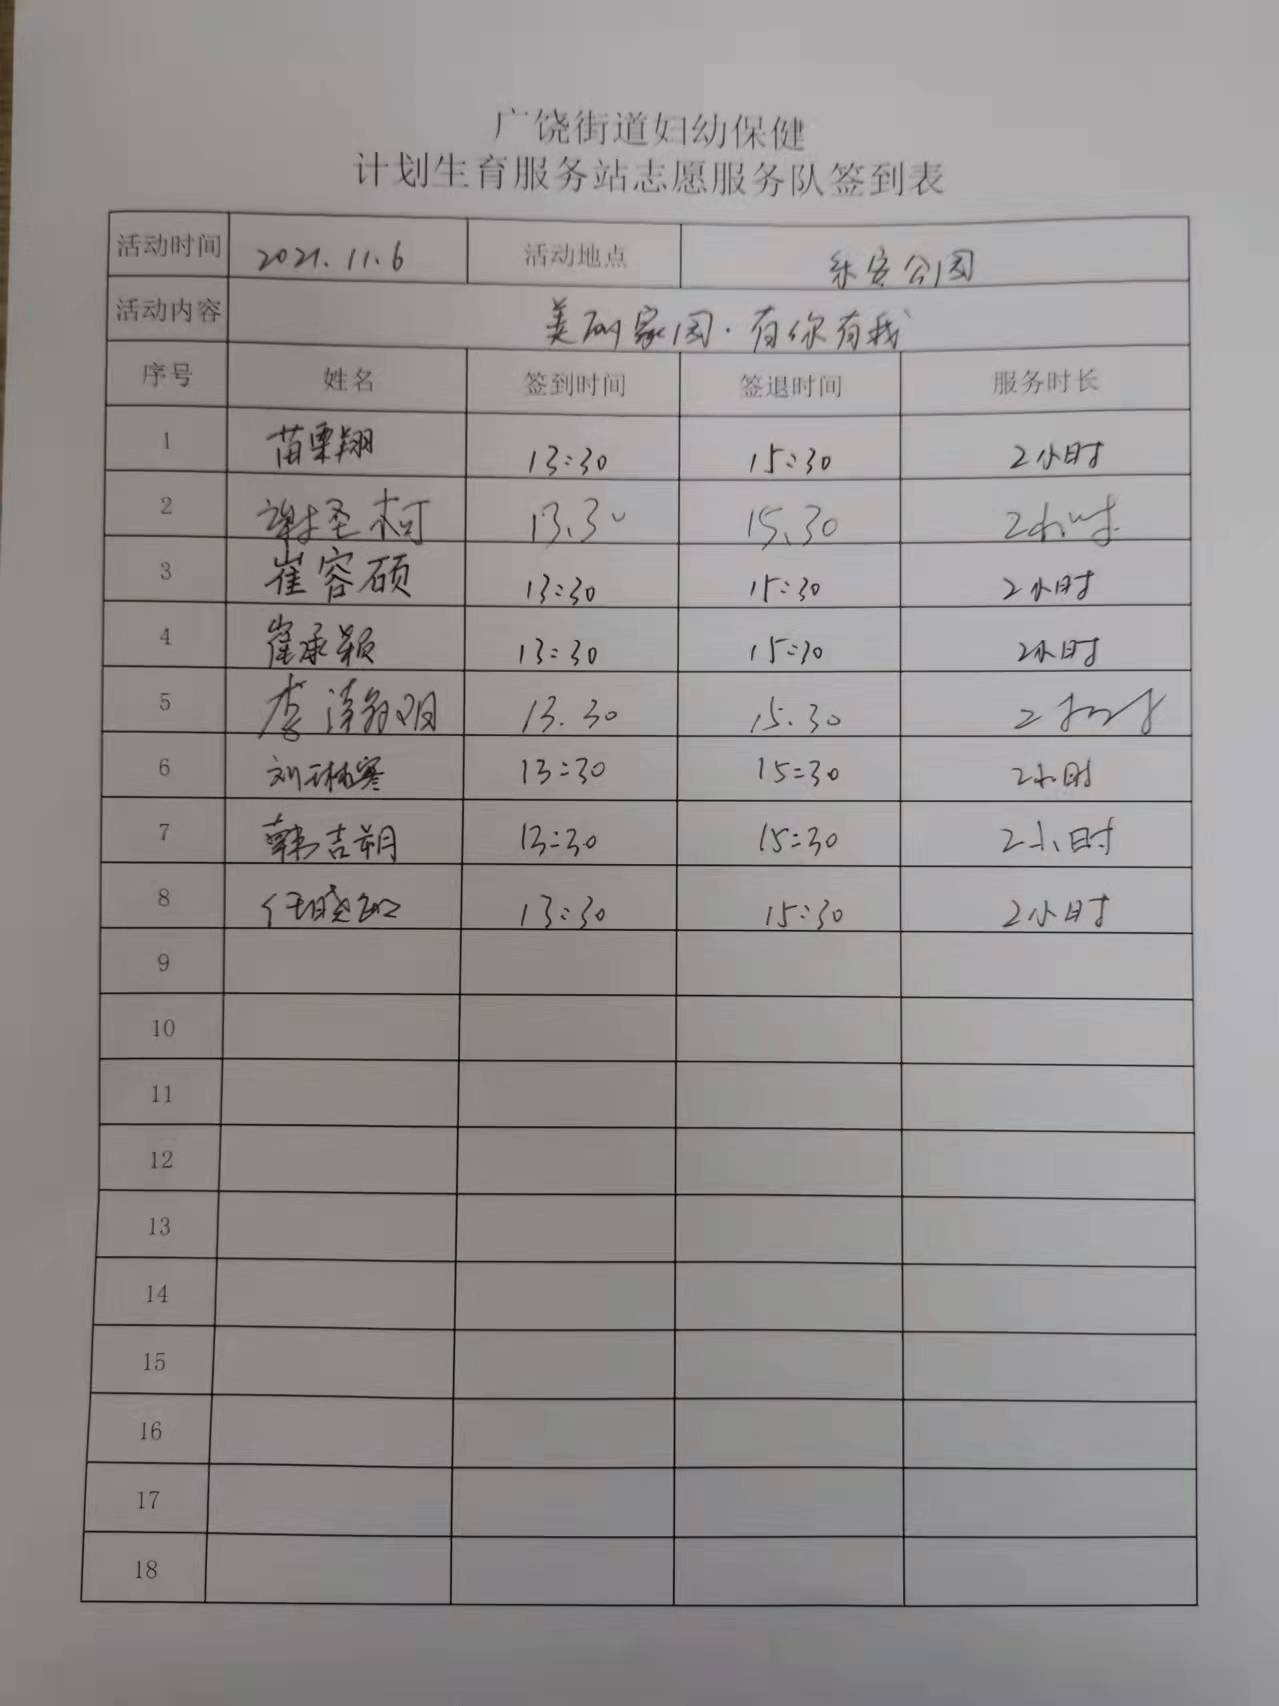 广饶街道妇幼保健
计划生育服务站志愿服务队签到表
活动时间 2021.11.6 活动地点 乐安公园
活动内容 美丽家园·有你有我
序号 姓名 签到时间 签退时间 服务时长
1 苗栗翔 13:30 15:30 2小时
2 谢圣柯 13.30 15.30 2小时
3 崔容硕 13:30 15:30 2小时
4 崔承颖 13:30 15:30 2小时
5 李 13.30 15.30 2小时
6 刘琳寒 13:30 15:30 2小时
7 韩吉朔 13:30 15:30 2小时
8 任晓 13:30 15:30 2小时
9
10
11
12
13
14
15
16
17
18